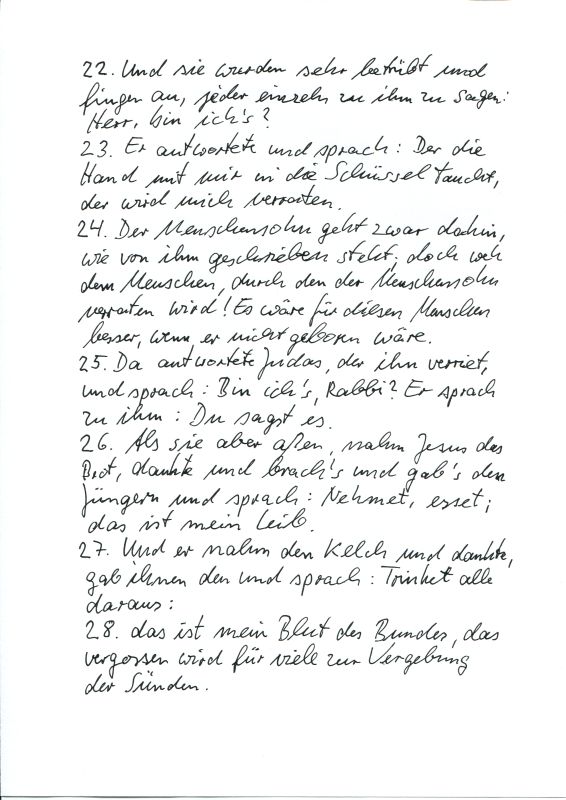 22. Und sie wurden sehr betrübt und
fingen an, jeder einzeln zu ihm zu sagen:
Herr, bin ich's?
23. Er antwortete und sprach: Der die
Hand mit mir in die Schüssel taucht,
der wird mich verraten.
24. Der Menschensohn geht zwar dahin,
wie von ihm geschrieben steht; doch weh
dem Menschen, durch den der Menschensohn
verraten wird! Es wäre für diesen Menschen
besser, wenn er nicht geboren wäre.
25. Da antwortete Judas, der ihn verriet,
und sprach: Bin ich's, Rabbi? Er sprach
zu ihm: Du sagst es.
26. Als sie aber aßen, nahm Jesus das
Brot, dankte und brach's und gab's den
Jüngern und sprach: Nehmet, esset;
das ist mein Leib.
27. Und er nahm den Kelch und dankte,
gab ihnen den und sprach: Trinket alle
daraus:
28. das ist mein Blut des Bundes, das
vergossen wird für viele zur Vergebung
der Sünden.